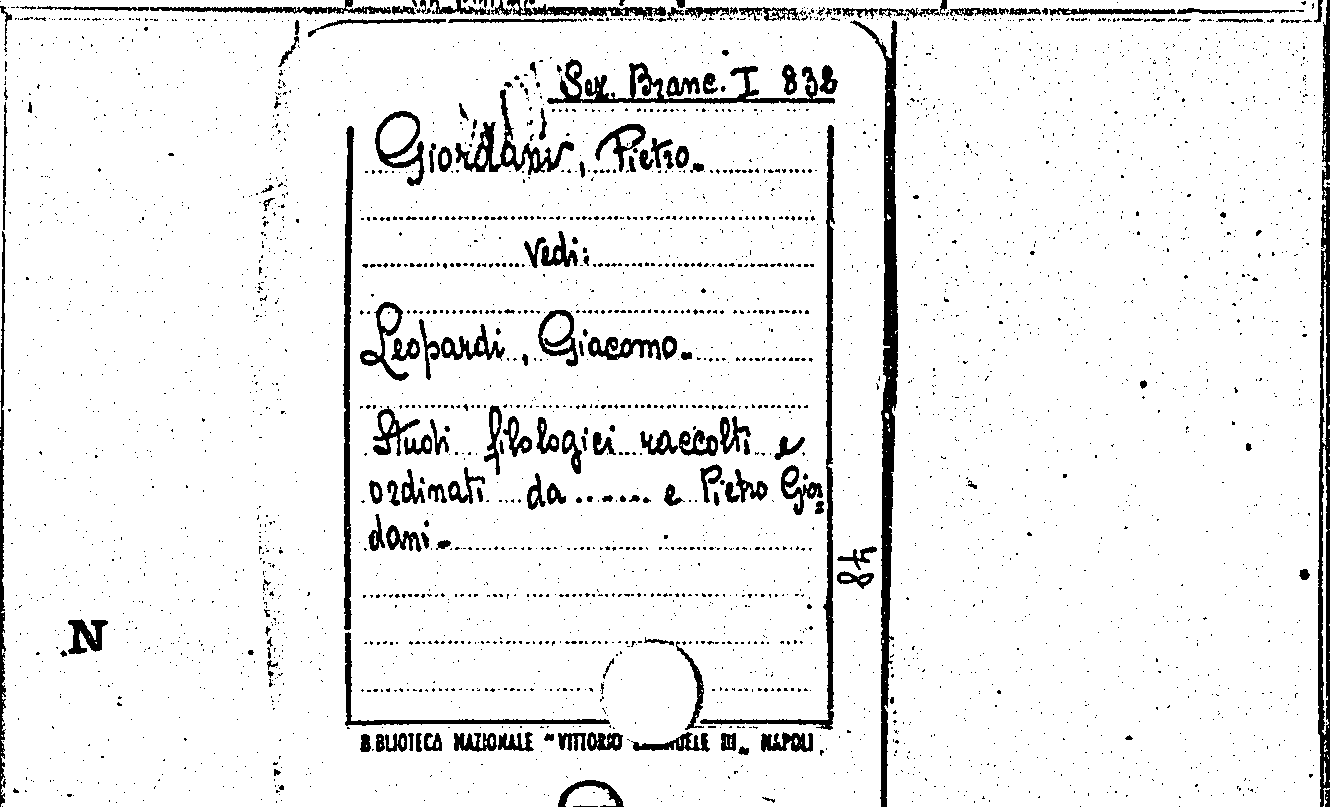 Sez. Branc. I 838
Giordani, Pietro.
Vedi:
Leopardi, Giacomo.
Studi filologici raccolti e
ordinati da ....... e Pietro Gior=
dani.
78
N
BIBLIOTECA NAZIONALE "VITTORIO EMANUELE III" NAPOLI